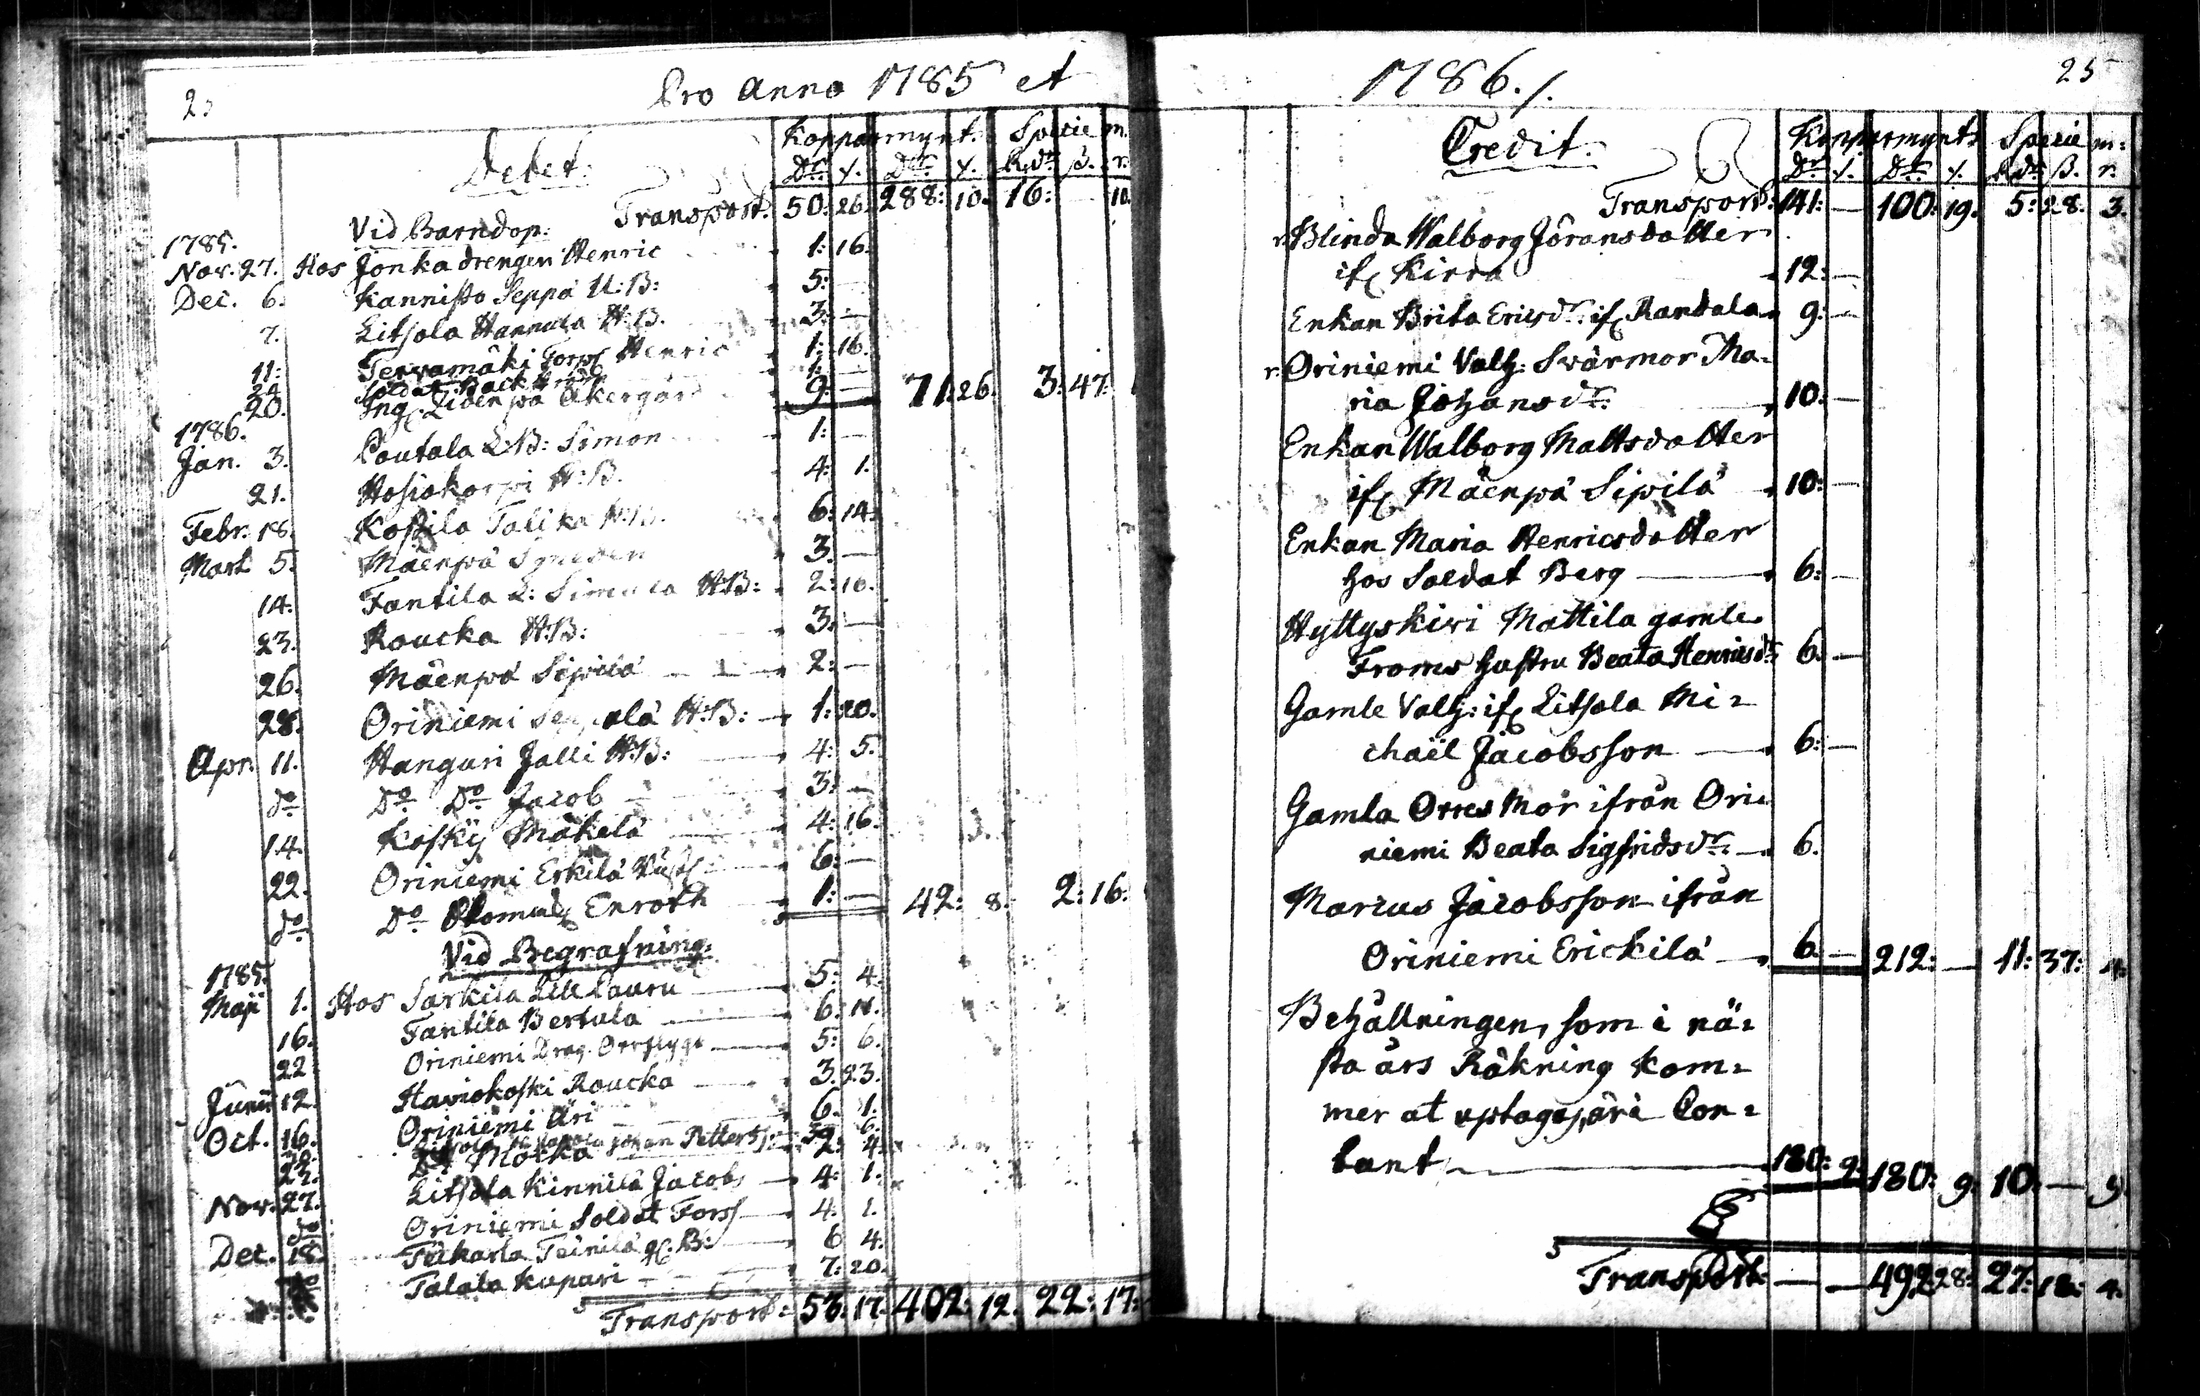 25
Pro Anno 1785 et
Debet.
Kopparmynt. Specie m.
Dr. /. Dr. /. Rdr. ß. r.
Transport. 50: 26. 288: 10. 16: — 10.
Vid Barndop:
1785.
Nov. 27. Hos Jonka drengen Henric 1: 16.
Dec. 6. Kannisto Seppä H:B: 5: —
7. Litsola Hannula H:B. 3: —
11. Tervamäki Torp Henric 1: 16.
Soldat 1: —
20. Åkergård 9: — 71: 26. 3: 47.
1786.
Jan. 3. Poutala L:B: Simon 1: —
21. Hosiokorpi H:B. 4: 1.
Febr. 18. Kostila Talika H:B. 6: 14.
Mart. 5. Mäenpä Smeden 3. —
14. Fantila L: Simula H:B: 2: 16.
23. Roucka H:B: 3: —
26. Mäenpä Sipilä 2: —
28. Oriniemi H:B: 1: 20.
Apr. 11. Hanguri Jalli H:B: 4: 5.
do Do Do Jacob 3: —
14. Koskij Mäkelä 4: 16.
22. Oriniemi Erkilä 6: —
do Do Enroth 1: — 42: 8. 2: 16.
Vid Begrafning.
1785.
Maji 1. Hos Sarkila Lill Lauru 5: 4.
16. Fantila Bertula 6:
22 Oriniemi Drag. Orrflygt 5: 6.
Junii 12. Haviokoski Roucka 3. 23.
Oct. 16. Oriniemi Äri 6. 1.
Johan Petters 6.
23. Do Mörka 2: 4.
Nov. 27. Litsola Kinnilä Jacob 4: 1.
do Oriniemi Soldat Fors 4. 1.
Dec. 18. Teikarla Teinilä 6 4.
do Talala Kupari 7: 20.
Transport: 53: 17. 402: 12. 22: 17:
1786./.
25
Credit.
Kopparmynt Specie m:
Dr /. Dr. /. Rdr ß. r.
Transport: 141: — 100: 19. 5: 28. 3.
Blinda Walborg Jöransdotter
ifr. Kirra 12: —
Enkan Brita Ericsdr. ifr. Randala 9: —
Oriniemi Valhj: Svärmor Ma-
ria Johansdr. 10: —
Enkan Walborg Mattsdotter
ifr. Mäenpä Sipilä 10: —
Enkan Maria Henricsdotter
hos Soldat Berg 6: —
Hyttyskivi Mattila gamle
Froms hustru Beata Henricsdr. 6. —
Gamle Valhj: ifr. Litsola Mi-
chaël Jacobsson 6: —
Gamla Orres Mor ifrån Ori-
niemi Beata Sigfridsdr. 6.
Marcus Jacobsson ifrån
Oriniemi Erickilä 6. — 212: — 11: 37: 4.
Behållningen, som i nä-
sta års Räkning kom-
mer at uptagas, är i Con-
tant 180: 9. 180: 9. 10: — 9.
Transport: — — 492: 28: 27: 18: 4.